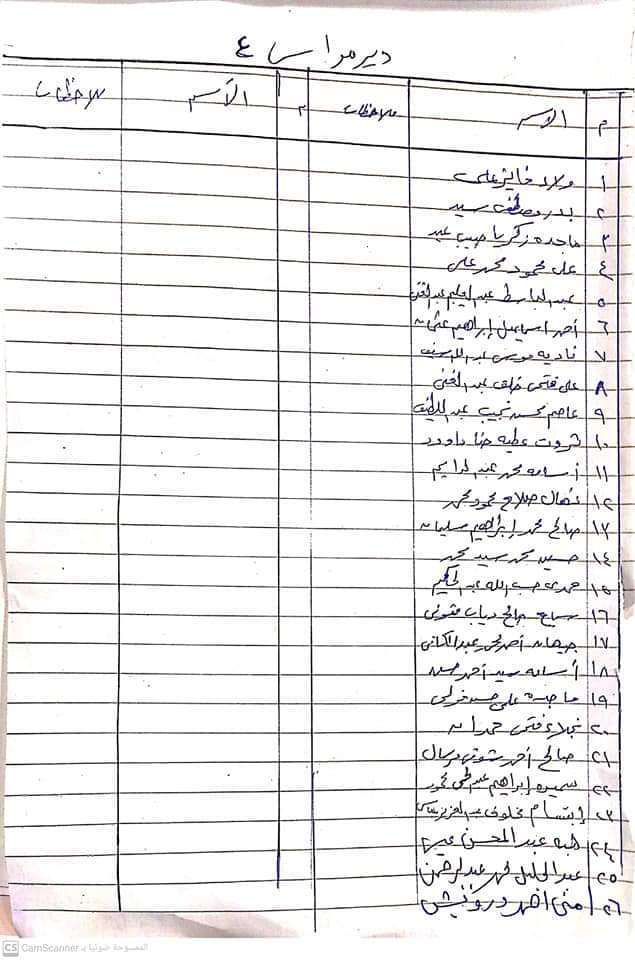 دير مواس ع
م الاسم ملاحظات م الاسم ملاحظات
١ ولاد فايز على
٢ بدر مصطفى سيد
٣ ماجده زكريا حبيب عبد
٤ على محمود محمد على
٥ عبد الباسط عبد العليم عبد الغنى
٦ أحمد اسماعيل إبراهيم عثمان
٧ ناديه موسى عبد اللطيف
٨ على فتحى خلف عبد الغنى
٩ عاصم محسن نجيب عبد اللطيف
١٠ ثروت عطيه حنا داوود
١١ أسامه محمد عبد الدايم
١٢ نضال صلاح محمود محمد
١٣ صالح محمد إبراهيم سليمان
١٤ حسين محمد سيد محمد
١٥ حمدى حسب الله عبد الحكيم
١٦ سامح صالح دياب
١٧ جيهان أحمد محمد
١٨ أسامه سيد أحمد حسن
١٩ ماجده على حسن
٢٠ نجلاء فتحى حمدان
٢١ صالح أحمد شوقى
٢٢ سميره إبراهيم عبد الحى محمود
٢٣ إبتسام مخلوف عبد العزيز
٢٤ هبه عبد المحسن
٢٥ عبد الجليل محمد عبد الرحمن
٢٦ منى احمد درويش
الممسوحة ضوئيا بـ CamScanner
CS